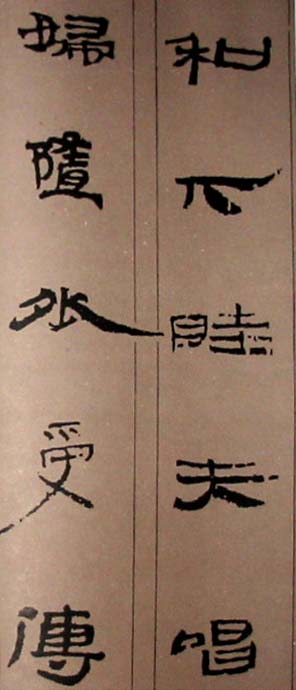 和下睦夫唱
婦隨外受傅